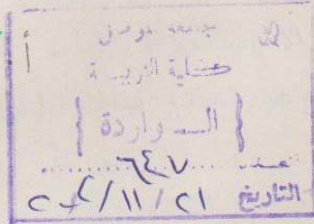 جامعة الموصل
أ
كلية التربية
{ الـــواردة }
٦٤٧
التاريخ ٢١ / ١١ /